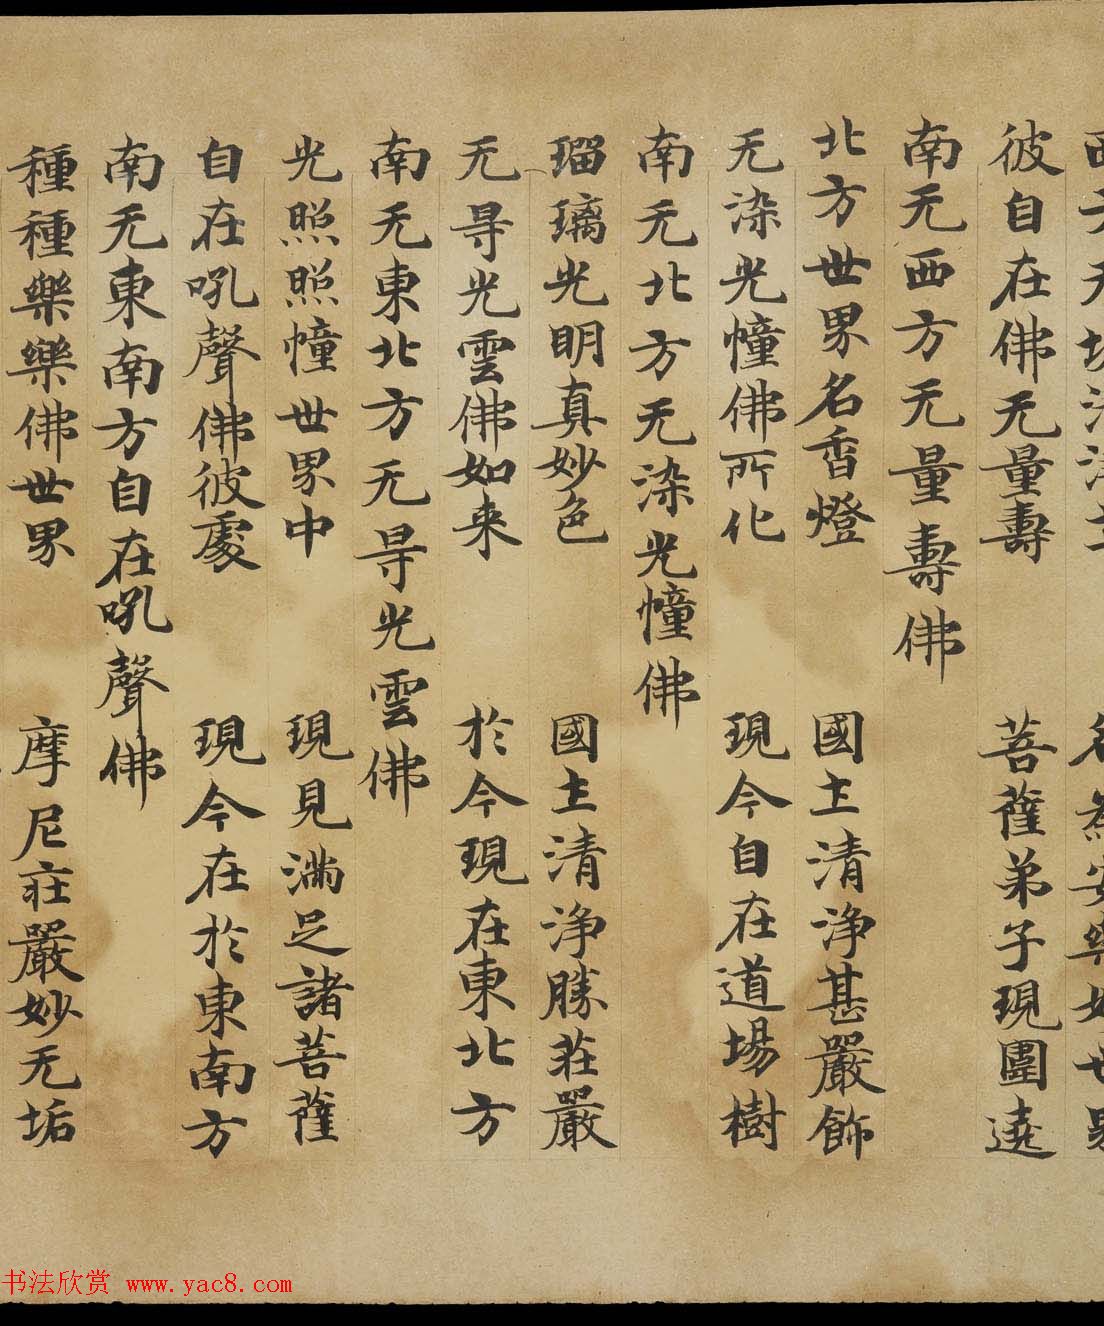 名為安樂妙世界
彼自在佛无量壽 菩薩弟子現圍遶
南无西方无量壽佛
北方世界名香燈 國土清淨甚嚴飾
无染光幢佛所化 現今自在道場樹
南无北方无染光幢佛
瑠璃光明真妙色 國土清淨勝莊嚴
无㝵光雲佛如来 於今現在東北方
南无東北方无㝵光雲佛
光照照幢世界中 現見滿足諸菩薩
自在吼聲佛彼處 現今在於東南方
南无東南方自在吼聲佛
種種樂樂佛世界 摩尼莊嚴妙无垢
书法欣赏 www.yac8.com